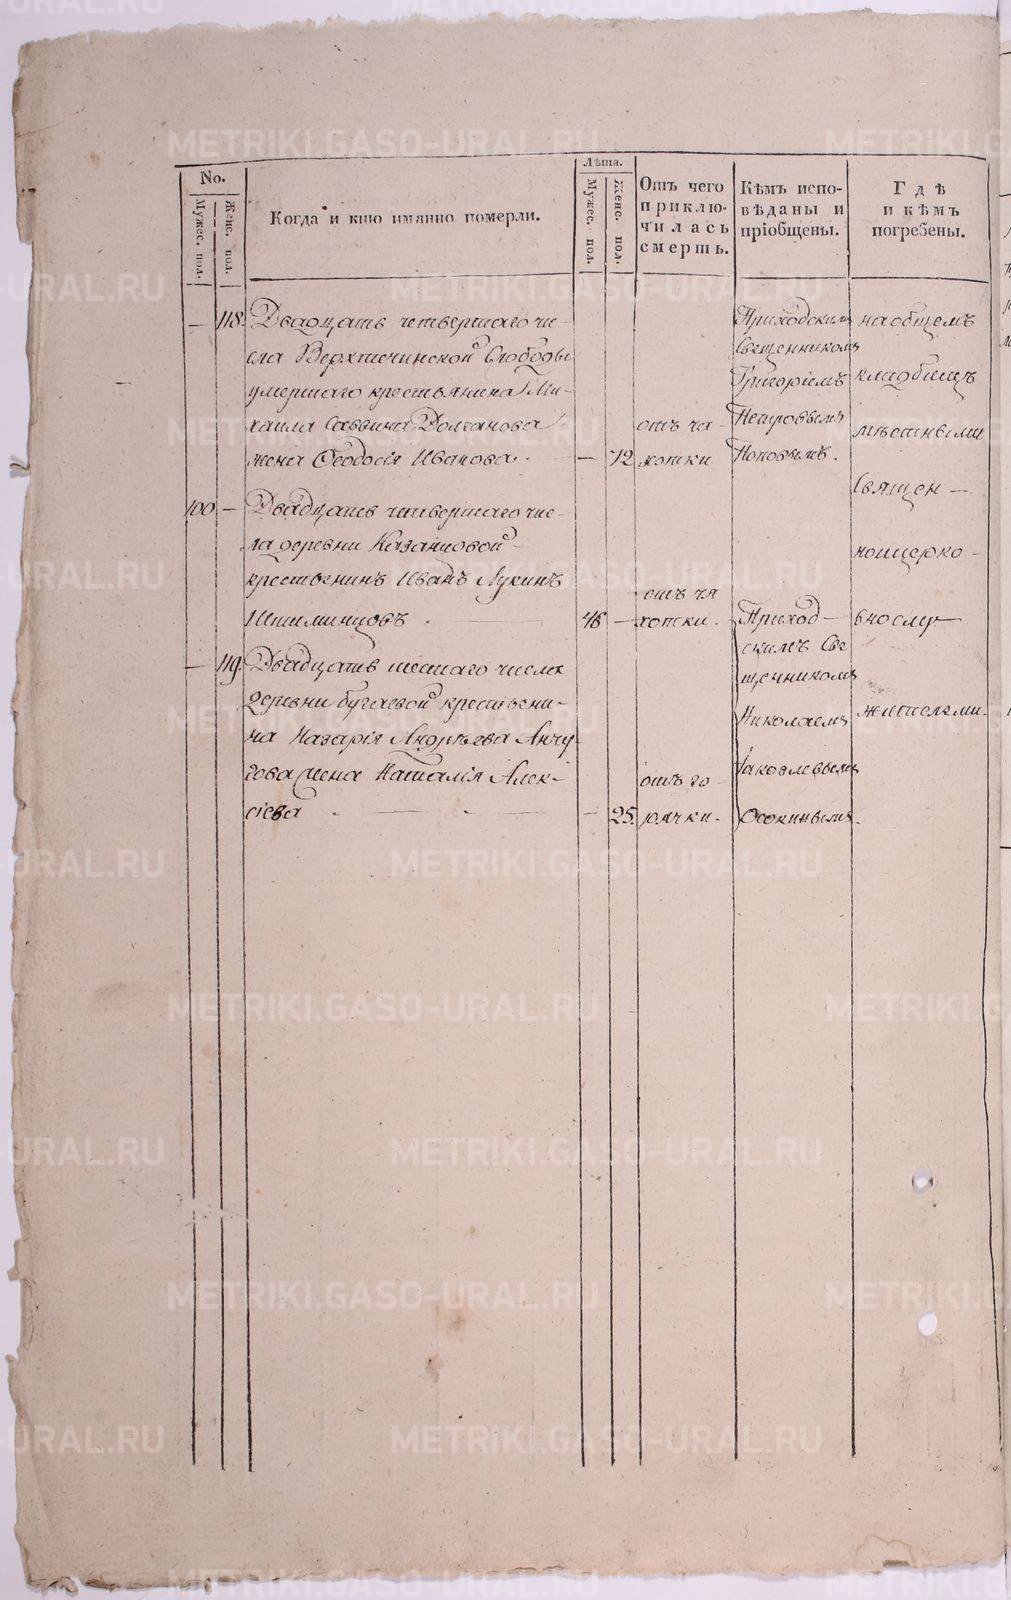 No.
Мужес. пол.
Женс. пол.
Когда и кто имянно померли.
Лѣта.
Мужес. пол.
Женс. пол.
Отъ чего
приклю-
чилась
смерть.
Кѣмъ испо-
вѣданы и
пріобщены.
Гдѣ
и кѣмъ
погребены.
— 118. Двадцать четвертаго чи-
сла Верхтечинской Слободы
умершаго крестьянина Ми-
хаила Саввина Долганова
жена Ѳеодосія Иванова — 72
отъ ча-
хотки
Приходскимъ
Священникомъ
Григоріемъ
Поповымъ.
на общемъ
кладбищѣ
мѣстными
Священ-
ноцерко-
внослу-
жителями.
100 — Двадцать четвертаго чис-
ла деревни Казанцовой
крестьянинъ Иванъ Лукинъ
46 —
отъ ча
хотки.
Приход-
скимъ Свя
щенникомъ
Николаемъ
Іаковлевымъ
Осокинымъ.
— 119. Двадцать шестаго числа
деревни Бугаевой крестьяни-
на Назарія Андрѣева Анчу-
гова жена Наталія Алек-
сіева — 25.
отъ го-
рячки.
METRIKI.GASO-URAL.RU